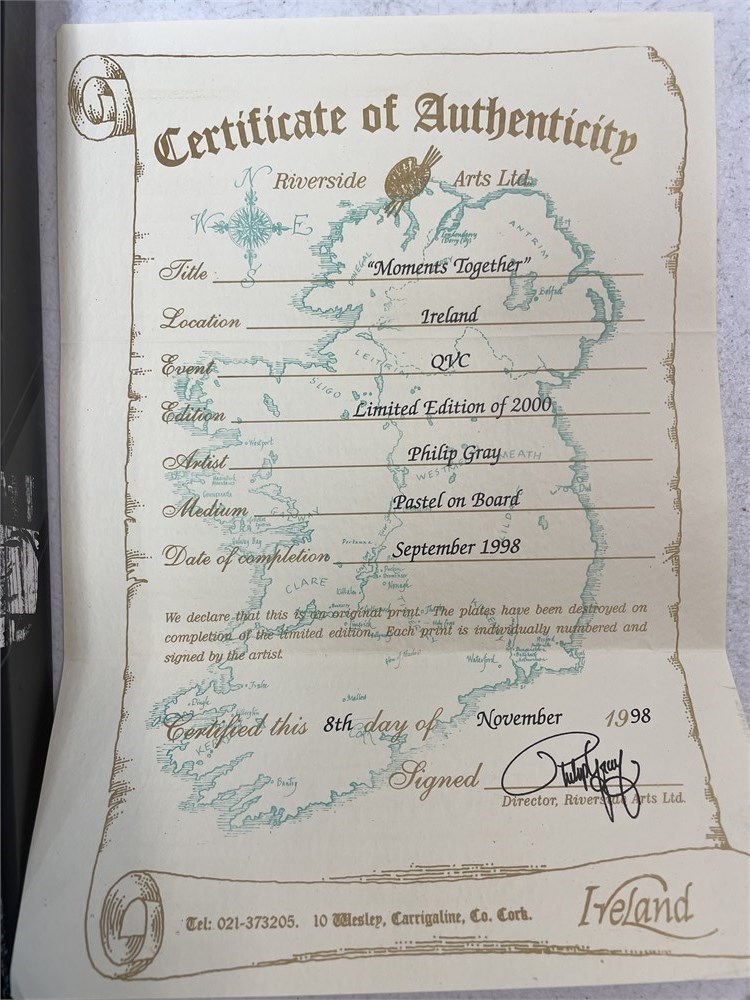 Certificate of Authenticity
Riverside Arts Ltd.
N
W E
S
Title "Moments Together"
Location Ireland
Event QVC
Edition Limited Edition of 2000
Artist Philip Gray
Medium Pastel on Board
Date of completion September 1998
We declare that this is an original print. The plates have been destroyed on
completion of the limited edition. Each print is individually numbered and
signed by the artist
Certified this 8th day of November 1998
Signed Philip Gray
Director, Riverside Arts Ltd.
Tel: 021-373205. 10 Wesley, Carrigaline, Co. Cork.
Ireland
ANTRIM
Belfast
DONEGAL
LEITRIM
SLIGO
Westport
WESTMEATH
GALWAY
Galway Bay
CLARE
Nenagh
Waterford
Tralee
Dingle
Mallow
KERRY
Bantry